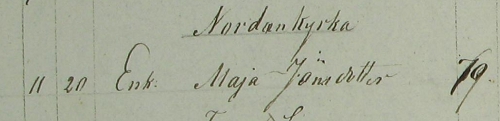 Nordankyrka
11 20 Enk: Maja Jönsdotter 79.